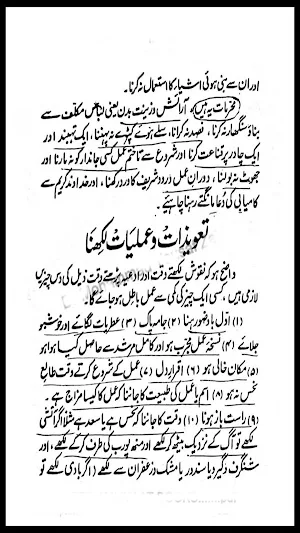 اور ان سے بنی ہوئی اشیار کا استعمال نہ کرنا۔
محرمات یہ ہیں، آرائش و زینت بدن یعنی لباس مکلف سے
بناؤ سنگھار نہ کرنا، فصد نہ کرانا، سلے ہوئے کپڑے نہ پہننا، ایک تہبند اور
ایک چادر پر قناعت کرنا اور شروع سے تا ختم عمل کسی جاندار کو نہ مارنا اور
جھوٹ نہ بولنا، دوران عمل درود شریف کا ورد رکھنا، اور خداوند کریم سے
کامیابی کی دعا مانگتے رہنا چاہیے۔
تعویذات و عملیات لکھنا
واضح ہو کہ نقوش لکھتے وقت اور ادعیہ پڑھتے وقت ذیل کی دس چیزیں
لازمی ہیں، کسی ایک چیز کی کمی سے عمل باطل ہو جائے گا۔
(۱) اوّل باوضو رہنا (۲) جامہ پاک (۳) عطریات لگائے اور خوشبو
جلائے (۴) نسخۂ عمل مجرب ہو اور کامل مرشد سے حاصل کیا ہوا ہو
(۵) مکان خالی ہو (۶) اقرار دل (۷) عمل کے شروع کرتے وقت طالع
نحس نہ ہو (۸) اسم یا عمل کی طبیعت کا جاننا کہ عمل کا کیسا مزاج ہے۔
(۹) راست باز ہونا (۱۰) وقت کا جاننا کہ نحس ہے یا سعد ہے مثلاً اگر آتشی
لکھے تو آگ کے نزدیک بیٹھ کر لکھے اور منہ پورب کی طرف کر کے لکھے، اور
شنگرف و گیرو یا سندور یا مشک و زعفران سے لکھے (اگر بادی لکھے تو